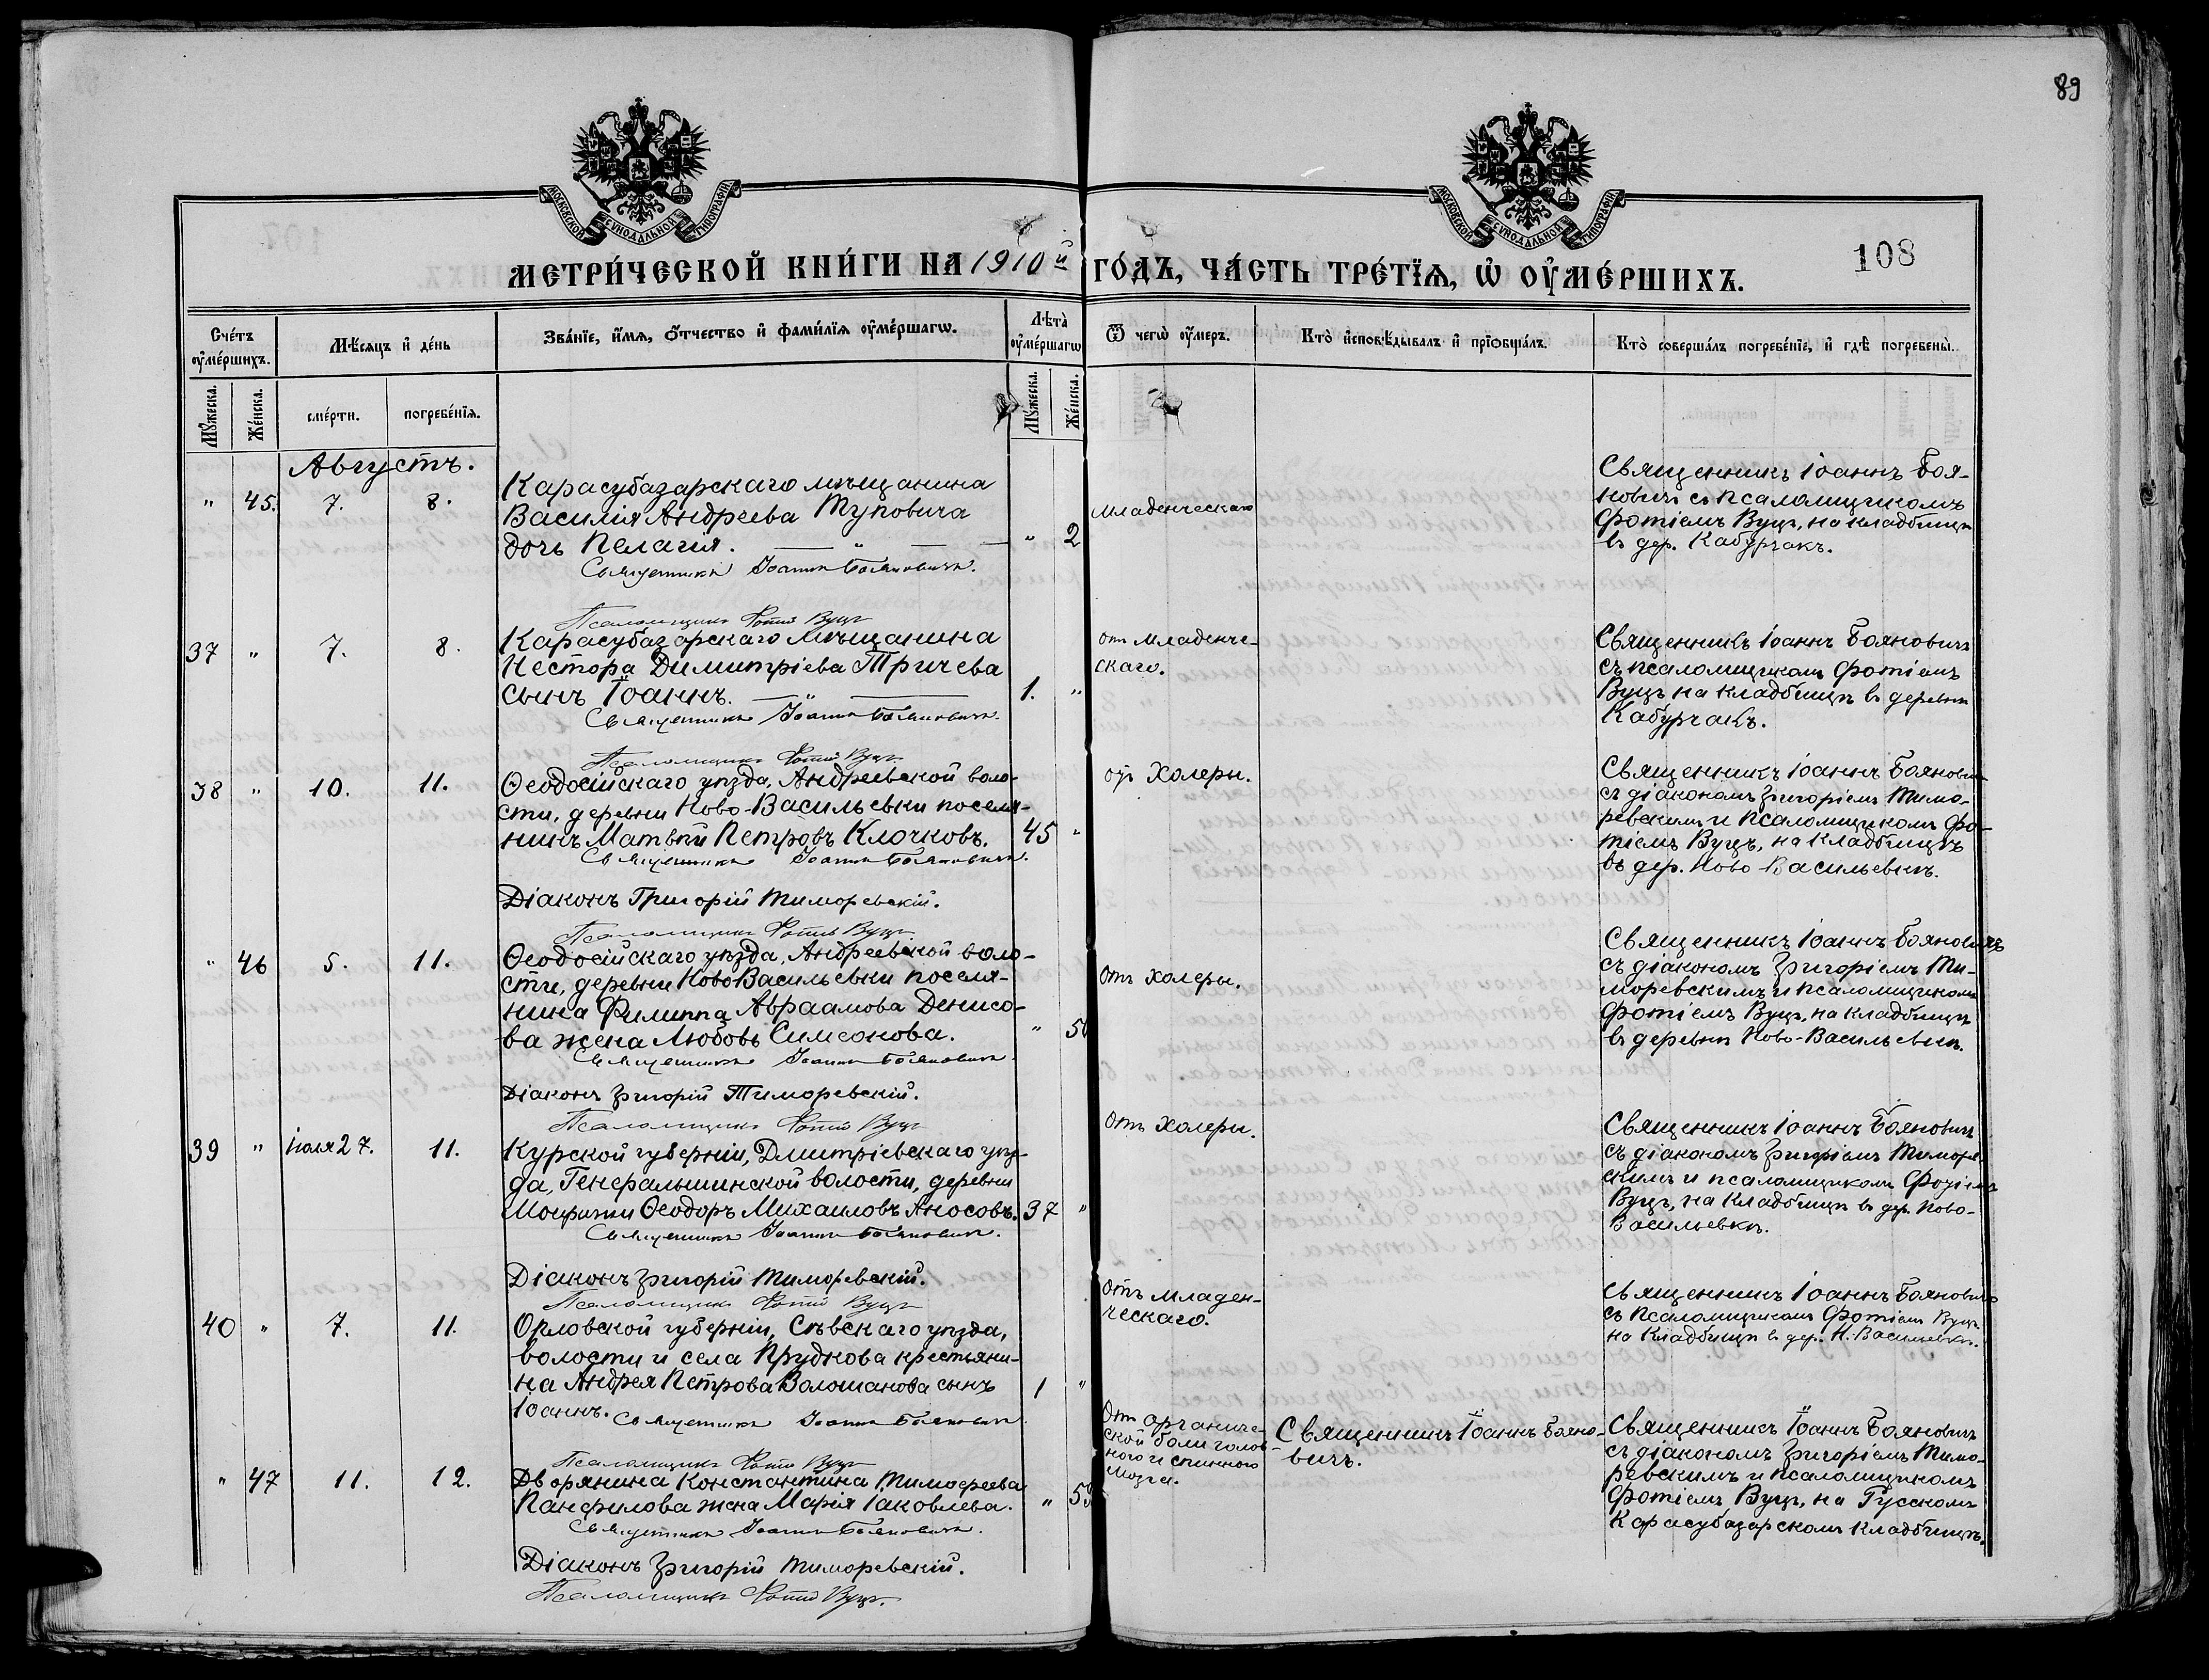 89
МОСКОВСКОЙ СѴНОДАЛЬНОЙ ТИПОГРАФІИ
МОСКОВСКОЙ СѴНОДАЛЬНОЙ ТИПОГРАФІИ
108
МЕТРИ́ЧЕСКОЙ КНИ́ГИ НА 1910й ГО́ДЪ, ЧА́СТЬ ТРЕ́ТЇѦ, Ѡ҆ ОУ҆МЕ́РШИХЪ.
Сче́тъ оу҆ме́ршихъ.
Мѣ́сяцъ и҆ де́нь
Зва́нїе, и҆́мѧ, ѻ҆́тчество и҆ фами́лїѧ оу҆ме́ршагѡ.
Лѣта̀ оу҆ме́ршагѡ
Ѿ чегѡ̀ оу҆́меръ.
Кто̀ и҆сповѣ́дывалъ и҆ прїѡбща́лъ.
Кто̀ соверша́лъ погребе́нїе, и҆ гдѣ̀ погребены̀.
Мꙋ́жеска.
Же́нска.
сме́рти.
погребе́нїѧ.
Мꙋ́жеска.
Же́нска.
Августъ.
" 45. 7. 8.
Карасубазарскаго мѣщанина
Василія Андреева Туповича
дочь Пелагія. " 2
Священникъ Іоаннъ Бояновичъ.
Псаломщикъ Фотій Вуцъ
младенческаго
Священникъ Іоаннъ Боя-
новичъ съ псаломщикомъ
Фотіемъ Вуцъ, на кладбищѣ
въ дер. Кабурчакъ.
37 " 7. 8.
Карасубазарскаго мѣщанина
Нестора Димитріева Тричева
сынъ Іоаннъ. 1. "
Священникъ Іоаннъ Бояновичъ.
Псаломщикъ Фотій Вуцъ
отъ младенче-
скаго.
Священникъ Іоаннъ Бояновичъ
съ псаломщикомъ Фотіемъ
Вуцъ на кладбищѣ въ деревнѣ
Кабурчакъ.
38 " 10. 11.
Ѳеодосійскаго уѣзда, Андреевской воло-
сти, деревни Ново-Васильевки поселя-
нинъ Матвѣй Петровъ Клочковъ. 45 "
Священникъ Іоаннъ Бояновичъ.
Діаконъ Григорій Тиморевскій.
Псаломщикъ Фотій Вуцъ
отъ Холеры.
Священникъ Іоаннъ Бояновичъ
съ діакономъ Григоріемъ Тимо-
ревскимъ и псаломщикомъ Фо-
тіемъ Вуцъ, на кладбищѣ
въ дер. Ново-Васильевкѣ.
" 46 5. 11.
Ѳеодосійскаго уѣзда, Андреевской воло-
сти, деревни Ново Васильевки поселя-
нина Филиппа Авраамова Денисо-
ва жена Любовь Симеонова. "
Священникъ Іоаннъ Бояновичъ.
Діаконъ Григорій Тиморевскій.
Псаломщикъ Фотій Вуцъ
отъ холеры.
Священникъ Іоаннъ Бояновичъ
съ діакономъ Григоріемъ Ти-
моревскимъ и псаломщикомъ
Фотіемъ Вуцъ, на кладбищѣ
въ деревнѣ Ново-Васильевкѣ.
39 " іюля 27. 11.
Курской губерніи, Дмитріевскаго уѣз-
да, Генеральшинской волости, деревни
Ѳеодоръ Михаиловъ Аносовъ. 37 "
Священникъ Іоаннъ Бояновичъ.
Діаконъ Григорій Тиморевскій.
Псаломщикъ Фотій Вуцъ
отъ холеры.
Священникъ Іоаннъ Бояновичъ
съ діакономъ Григоріемъ Тиморев-
скимъ и псаломщикомъ Фотіемъ
Вуцъ, на кладбищѣ въ дер. Ново-
Васильевкѣ.
40 " 7. 11.
Орловской губерніи, Сѣвскаго уѣзда,
волости и села Пруднова крестьяни-
на Андрея Петрова Волошанова сынъ 1 "
Іоаннъ. Священникъ Іоаннъ Бояновичъ
Псаломщикъ Фотій Вуцъ
отъ младен-
ческаго.
Священникъ Іоаннъ Бояновичъ
съ псаломщикомъ Фотіемъ Вуцъ
на кладбищѣ въ дер. Н. Васильевкѣ.
" 47 11. 12.
Дворянина Константина Тимофеева
Панфилова жена Марія Іаковлева. "
Священникъ Іоаннъ Бояновичъ.
Діаконъ Григорій Тиморевскій.
Псаломщикъ Фотій Вуцъ.
Отъ органиче-
ской боли голов-
ного и спинного
мозга.
Священникъ Іоаннъ Бояно-
вичъ.
Священникъ Іоаннъ Бояновичъ
съ діакономъ Григоріемъ Тимо-
ревскимъ и псаломщикомъ
Фотіемъ Вуцъ, на Русскомъ
Карасубазарскомъ кладбищѣ.